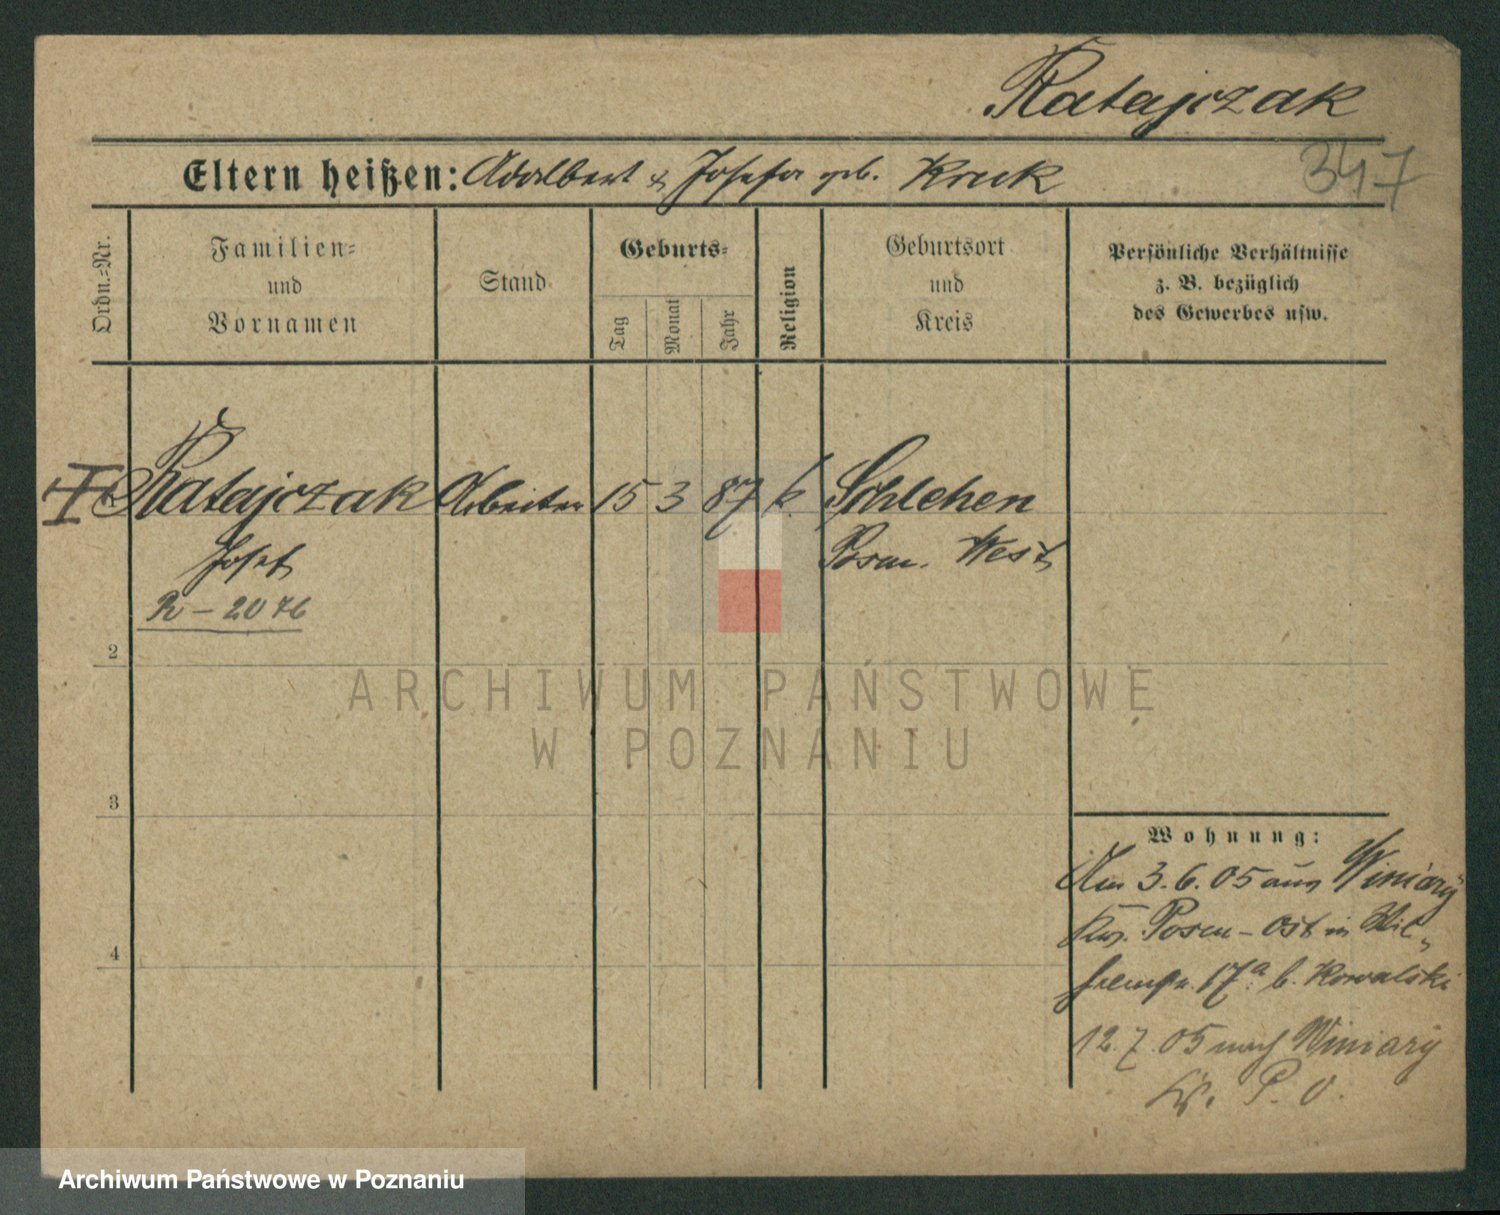 Ratajczak
347
Eltern heißen: Adalbert & Josefa geb. Kruk
Ordn.=Nr.
Familien=
und
Vornamen
Stand
Geburts=
Tag
Monat
Jahr
Religion
Geburtsort
und
Kreis
Persönliche Verhältnisse
z. B. bezüglich
des Gewerbes usw.
Ratajczak Arbeiter 15 3 87 k. Schlehen
Josef Posen. West
R - 2076
2
3
4
Wohnung:
Am 3.6.05 aus Winiary
Krs. Posen - Ost in
17a b. Kowalski
12.7.05 nach Winiary
Kr. P. O.
ARCHIWUM PAŃSTWOWE
W POZNANIU
Archiwum Państwowe w Poznaniu